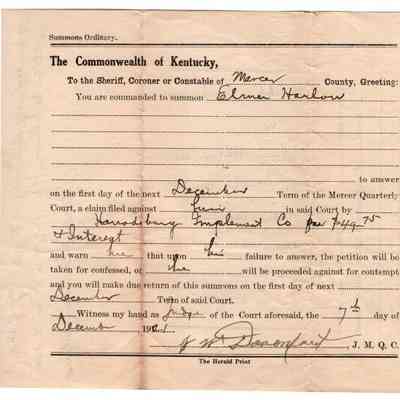 Summons Ordinary.
The Commonwealth of Kentucky,
To the Sheriff, Coroner or Constable of Mercer County, Greeting:
You are commanded to summon Elmer Harlow
to answer
on the first day of the next December Term of the Mercer Quarterly
Court, a claim filed against him in said Court by
Harrodsburg Implement Co for $49.75
& Interest
and warn him that upon his failure to answer, the petition will be
taken for confessed, or he will be proceeded against for contempt
and you will make due return of this summons on the first day of next
December Term of said Court.
Witness my hand as Judge of Court aforesaid, the 7th day of
December 191
J W Davenport J. M. Q. C.
The Herald Print